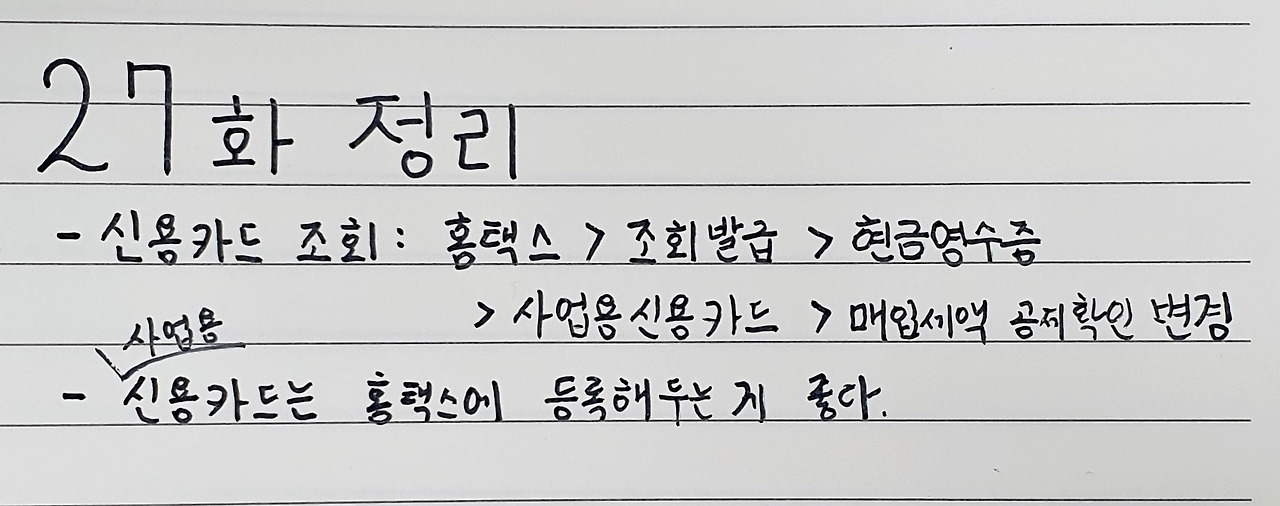 27화 정리
- 신용카드 조회: 홍택스 > 조회발급 > 현금영수증
> 사업용신용카드 > 매입세액 공제확인 변경
사업용
- 신용카드는 홍택스에 등록해두는 게 좋다.